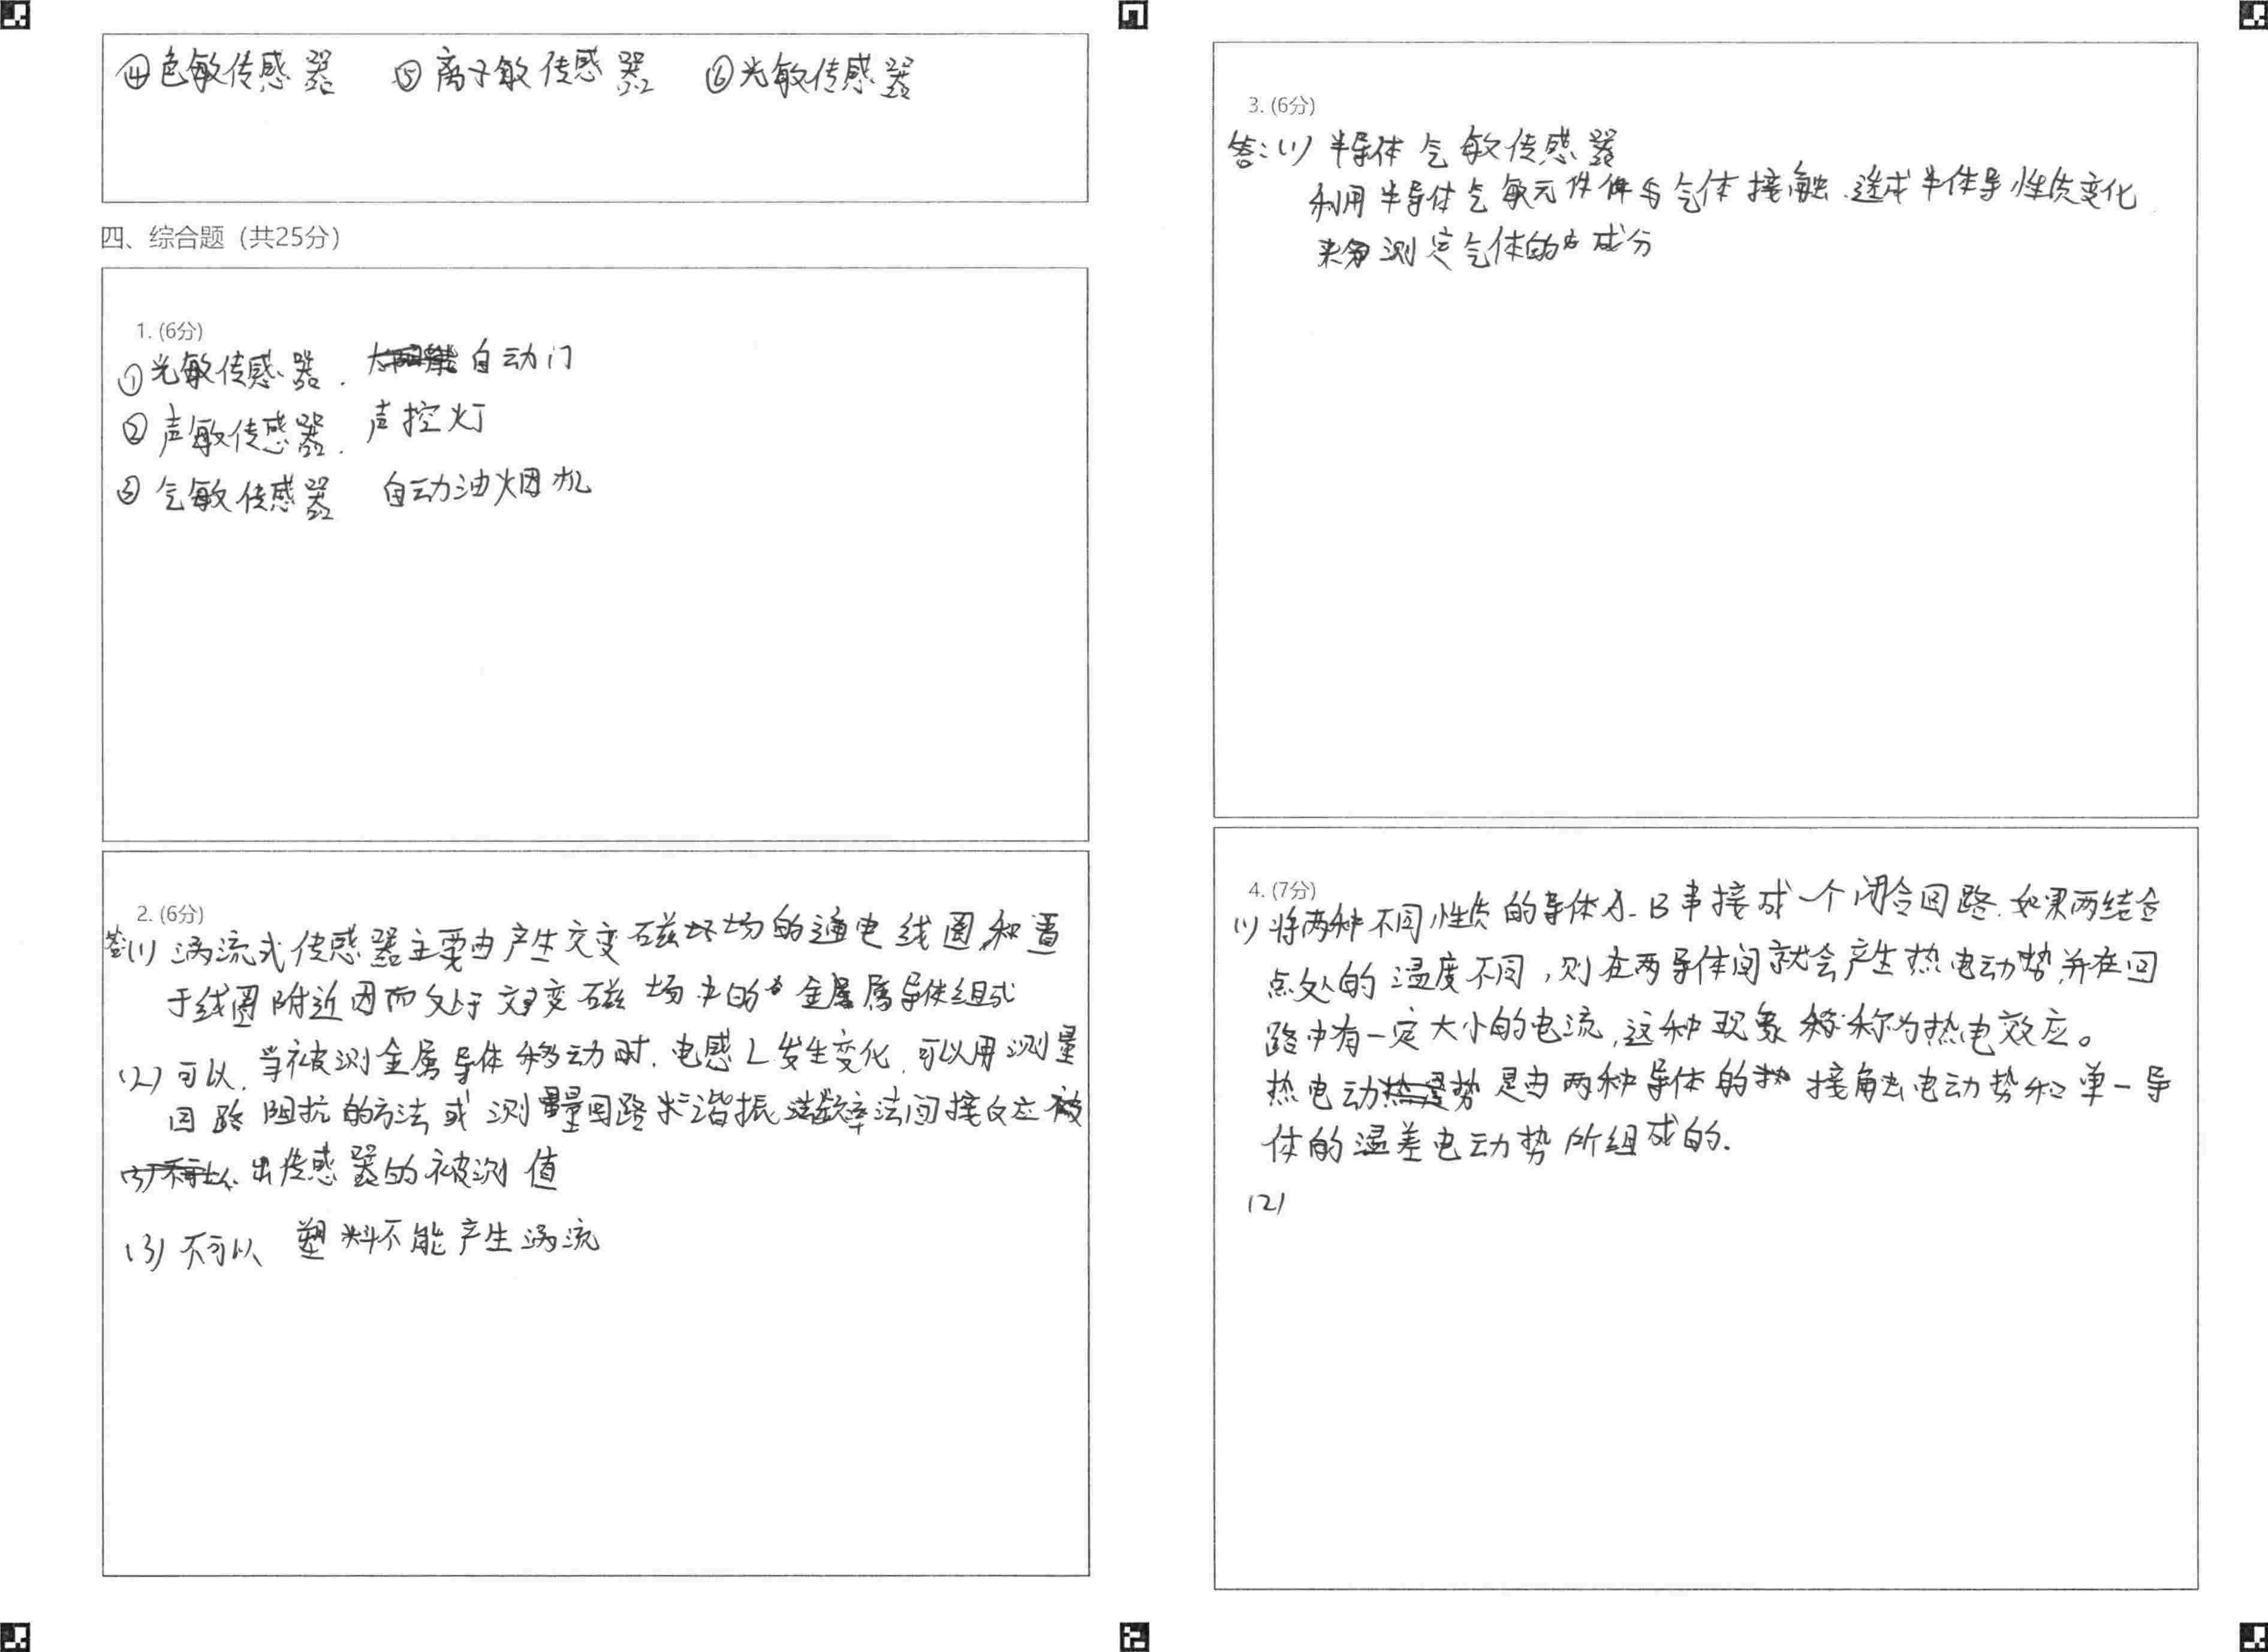 ④色敏传感器 ⑤离子敏传感器 ⑥光敏传感器
四、综合题（共25分）
1. (6分)
①光敏传感器. 自动门
②声敏传感器. 声控灯
③气敏传感器 自动油烟机
2. (6分)
答:(1) 涡流式传感器主要由产生交变磁场的通电线圈和置
于线圈附近因而处于交变磁场中的金属导体组成
(2) 可以. 当被测金属导体移动时. 电感L发生变化. 可以用测量
回路阻抗的方法或测量回路谐振频率法间接反应被
出传感器的被测值
(3) 不可以 塑料不能产生涡流
3. (6分)
答:(1) 半导体气敏传感器
利用半导体气敏元件与气体接触.造成半体导性质变化
来测定气体的成分
4. (7分)
(1) 将两种不同性质的导体A.B串接成一个闭合回路.如果两结合
点处的温度不同,则在两导体间就会产生热电动势,并在回
路中有一定大小的电流,这种现象称为热电效应。
热电动势是由两种导体的接触电动势和单一导
体的温差电动势所组成的.
(2)